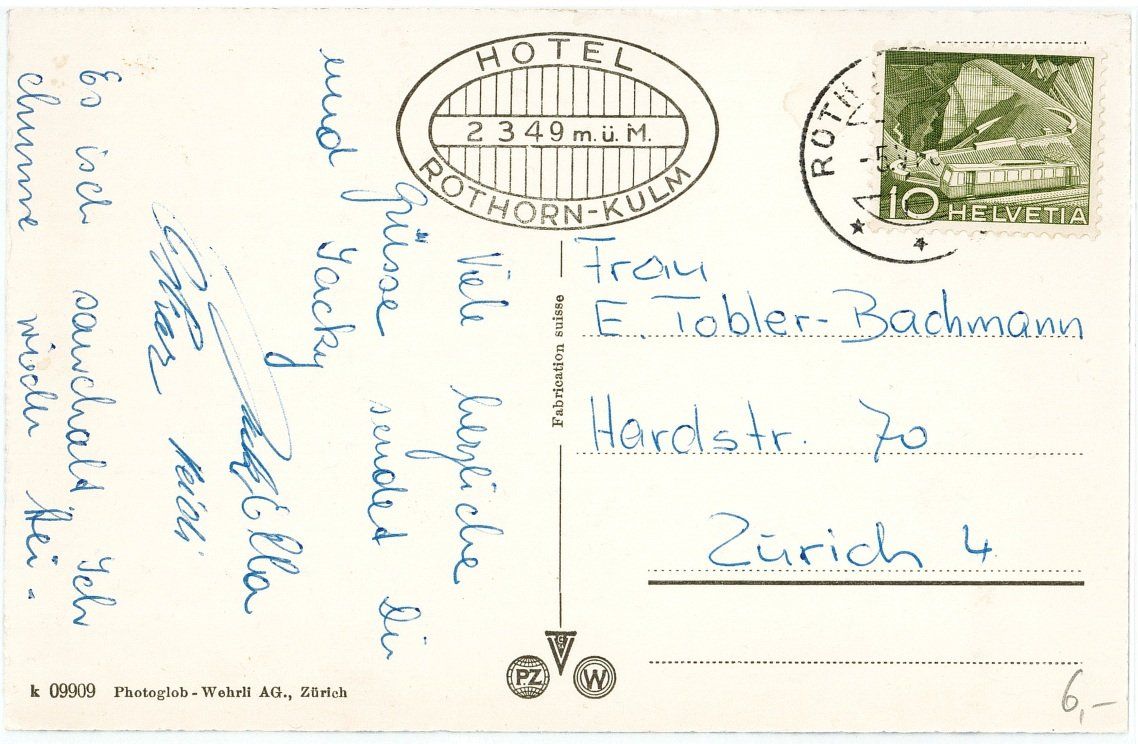 HOTEL
2349 m.ü.M.
ROTHORN-KULM
ROTH
10 HELVETIA
Viele herzliche
Grüsse sendet Dir
und Jacky
Ella
Heidi
Es isch sauchalt. Ich
chumme wieder hei.
Fabrication suisse
Frau
E. Tobler-Bachmann
Hardstr. 70
Zürich 4
PZ
W
k 09909 Photoglob-Wehrli AG., Zürich
6,-